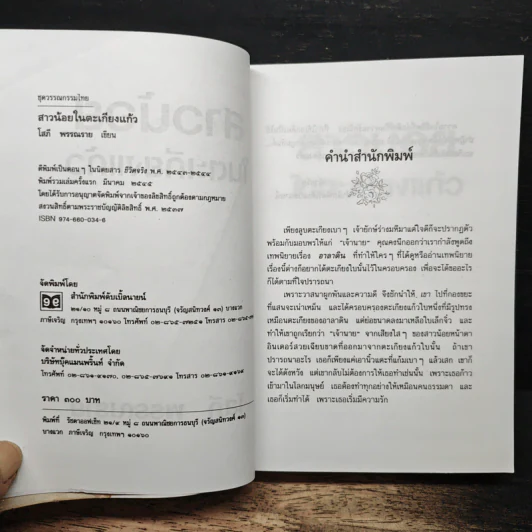 ชุดวรรณกรรมไทย
สาวน้อยในตะเกียงแก้ว
โสภี พรรณราย เขียน
ตีพิมพ์เป็นตอนๆ ในนิตยสาร ชีวิตจริง พ.ศ. ๒๕๔๓-๒๕๔๔
พิมพ์รวมเล่มครั้งแรก มีนาคม ๒๕๔๕
โดยได้รับการอนุญาตจัดพิมพ์จากเจ้าของลิขสิทธิ์ถูกต้องตามกฎหมาย
สงวนลิขสิทธิ์ตามพระราชบัญญัติลิขสิทธิ์ พ.ศ. ๒๕๓๗
ISBN 974-660-034-6
จัดพิมพ์โดย
สำนักพิมพ์ดับเบิ้ลนายน์
๒๑/๑๐ หมู่ ๘ ถนนพาณิชยการธนบุรี (จรัญสนิทวงศ์ ๑๓) บางแวก
ภาษีเจริญ กรุงเทพฯ ๑๐๑๖๐
จัดจำหน่ายทั่วประเทศโดย
บริษัทบุ๊คแมนพริ้นท์ จำกัด
ราคา ๓๐๐ บาท
พิมพ์ที่ วัชดาออฟเซ็ท ๒๑/๔ หมู่ ๘ ถนนพาณิชยการธนบุรี (จรัญสนิทวงศ์ ๑๓)
บางแวก ภาษีเจริญ กรุงเทพฯ ๑๐๑๖๐
คำนำสำนักพิมพ์
เพียงลูบตะเกียงเบาๆ เจ้ายักษ์ร่างมหึมาแต่ใจดีก็จะปรากฏตัว
พร้อมกับมอบพรให้แก่ "เจ้านาย" คุณคงนึกออกว่าเรากำลังพูดถึง
เทพนิยายเรื่อง อาลาดิน ที่ทำให้ใครๆ ที่ได้ดูหรืออ่านเทพนิยาย
เรื่องนี้ต่างก็อยากได้ตะเกียงใบนั้นไว้ในครอบครอง เพื่อจะได้ขออะไร
ก็ได้ตามที่ใจปรารถนา
เพราะวาสนาผูกพันและความดี จึงชักนำให้ เขา ไปที่กองขยะ
ที่แสนจะน่าเหม็น และได้ครอบครองตะเกียงแก้วใบหนึ่งที่มีรูปทรง
เหมือนตะเกียงของอาลาดิน แต่ย่อขนาดลงมาเหลือใบเล็กจิ๋ว และ
ทำให้เขาถูกเรียกว่า "เจ้านาย" จากเสียงใสๆ ของสาวน้อยหน้าตา
อินเตอร์สวยเฉียบขาดที่ออกมาจากตะเกียงแก้วใบนั้น ถ้าเขา
ปรารถนาอะไร เธอก็เพียงแค่เอานิ้วแตะที่แก้มเบาๆ แล้วเสก เขาก็
จะได้ดังหวัง แต่เขากลับไม่ต้องการให้เธอทำเช่นนั้น เพราะเธอก้าว
เข้ามาในโลกมนุษย์ เธอต้องทำทุกอย่างให้เหมือนคนธรรมดา และ
เธอก็เริ่มทำได้ เพราะเธอเริ่มมีความรัก